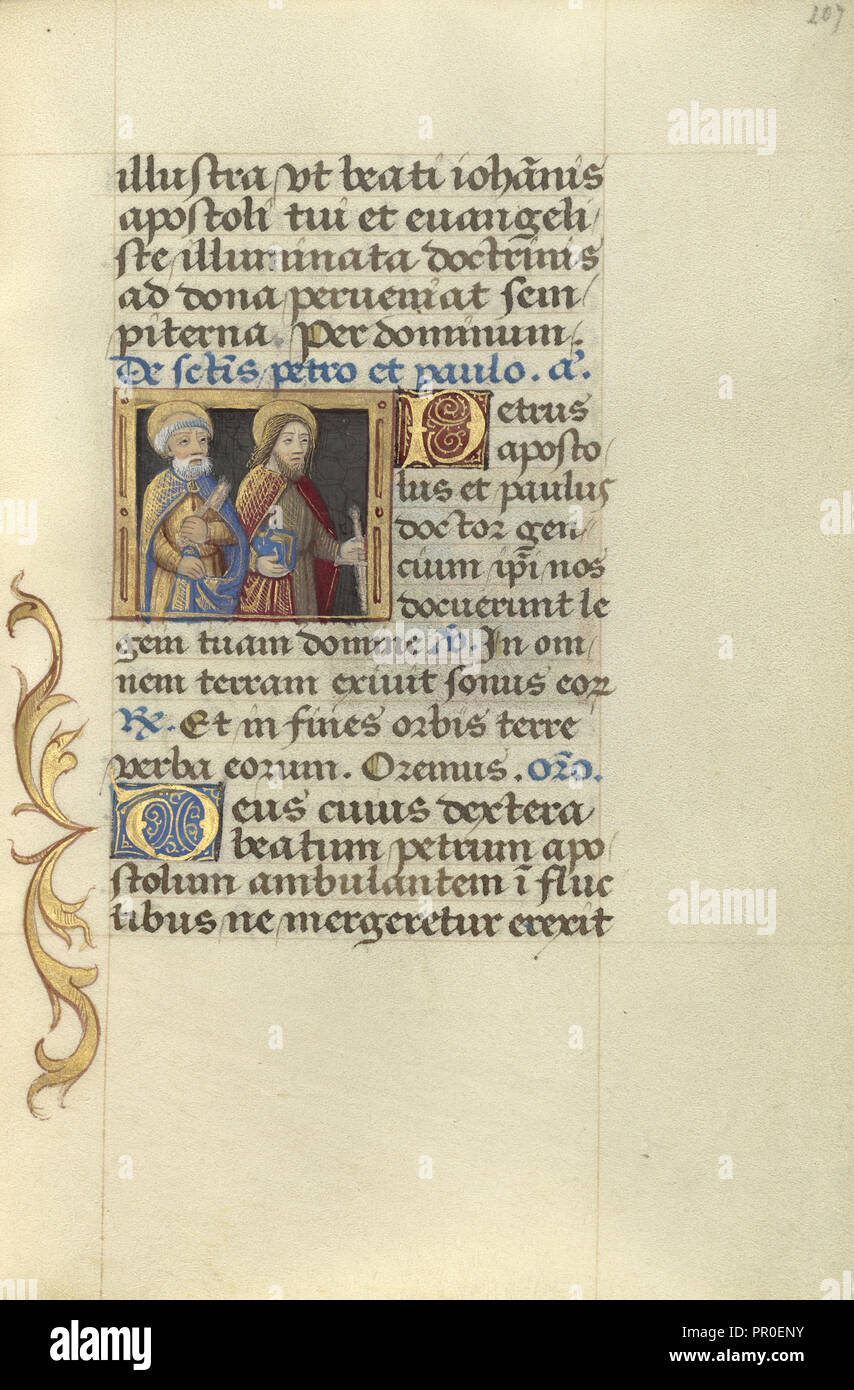 207
illustra vt beati iohānis
apostoli tui et euangeli/
ste illuminata doctrinis
ad dona perueniat sem/
piterna. Per dominum.
De sctis petro et paulo. a.
Petrus
aposto
lus et paulus
doctor gen/
cium ip̄i nos
docuerunt le
gem tuam domine ℣. In om/
nem terram exiuit sonus eoꝝ
℟. Et in fines orbis terre
verba eorum. Oremus. orō.
Deus cuius dextera
beatum petrum apo/
stolum ambulantem ī fluc
tibus ne mergeretur erexit
alamy
alamy
alamy
a
a
a
a
a
a
a
a
a
alamy
Image ID: PR0ENY
www.alamy.com